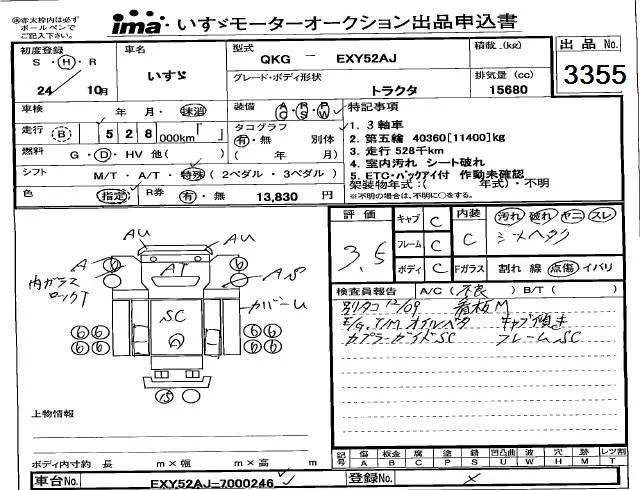 ※赤太枠内は必ず
ボールペンで
ご記入下さい。
ima・いすゞモーターオークション出品申込書
初度登録
S・H・R
24 10月
車名
いすゞ
型式
QKG － EXY52AJ
グレード・ボディ形状
トラクタ
積載 (kg)
排気量 (cc)
15680
出品 No.
3355
車検 年・月・抹消
装備 AC・PS・PW
走行 B 528000km
タコグラフ
有・無 別体
( 年 月)
燃料 G・D・HV 他( )
シフト M/T・A/T・特殊 (2ペダル・3ペダル)
色 指定 R券 有・無 13,830 円
特記事項
1. 3軸車
2. 第五輪 40360[11400]kg
3. 走行 528千km
4. 室内汚れ シート破れ
5. ETC・バックアイ付 作動未確認
架装物年式:( 年式)・不明
※不明の場合は、不明に○をする。
評価
3.5
キャブ C
フレーム C
ボディ C
内装 C
Fガラス
汚れ 破れ ヤニ スレ
割れ 線 点傷 イバリ
検査員報告 A/C(不良) B/T( )
別タコ12/09 看板M
E/G.T/M オイルベタ キャブ傾き
カプラーガイドSC フレームSC
AU
AU
A
AS
AT
内ガラス
ロックT
カバーU
SC
6 6
6 6 6 6 6 6 6 6
上物情報
ボディ内寸約 長 m×幅 m×高 m
記号 傷A 板金B 腐C 塗P 錆S 凹凸曲U 波W 穴H 跡M レツ割T
車台No. EXY52AJ-7000246
登録No.